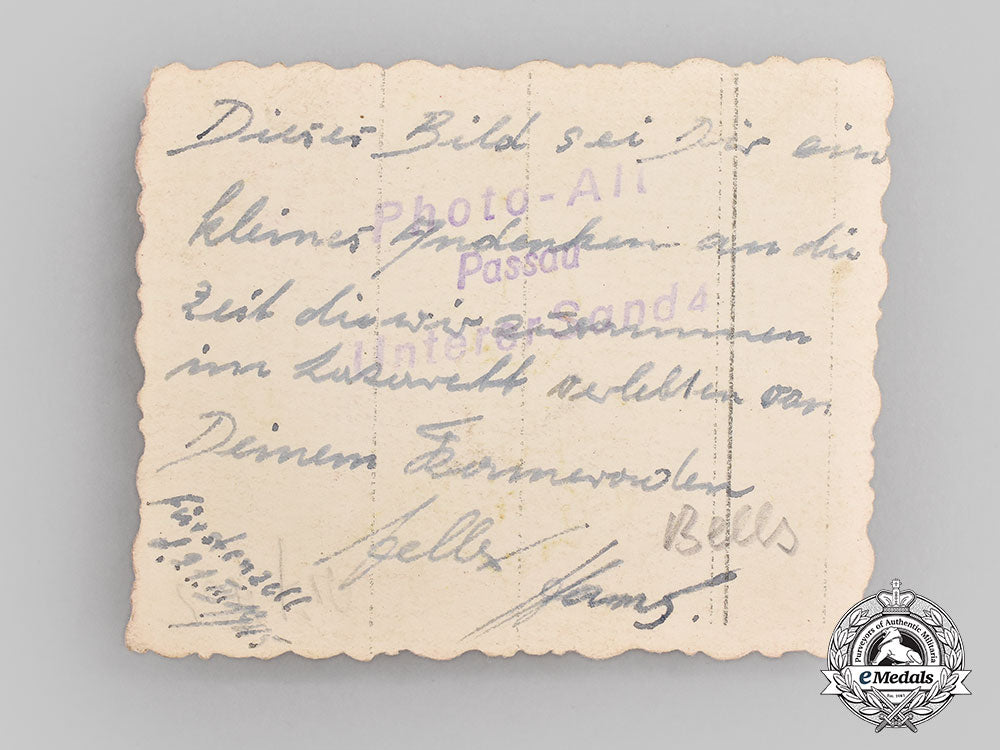 Dieses Bild sei Dir ein
kleines Andenken an die
Zeit die wir zusammen
im Lazarett verlebten von
Deinem Kameraden
Hans.
Bells
Fürstenzell
Photo-All
Passau
Unterer Sand 4
Purveyors of Authentic Militaria
eMedals